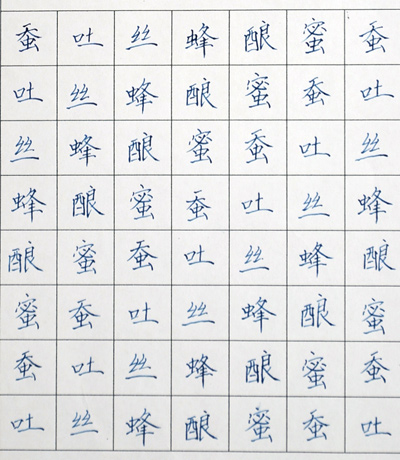 蚕吐丝蜂酿蜜蚕
吐丝蜂酿蜜蚕吐
丝蜂酿蜜蚕吐丝
蜂酿蜜蚕吐丝蜂
酿蜜蚕吐丝蜂酿
蜜蚕吐丝蜂酿蜜
蚕吐丝蜂酿蜜蚕
吐丝蜂酿蜜蚕吐